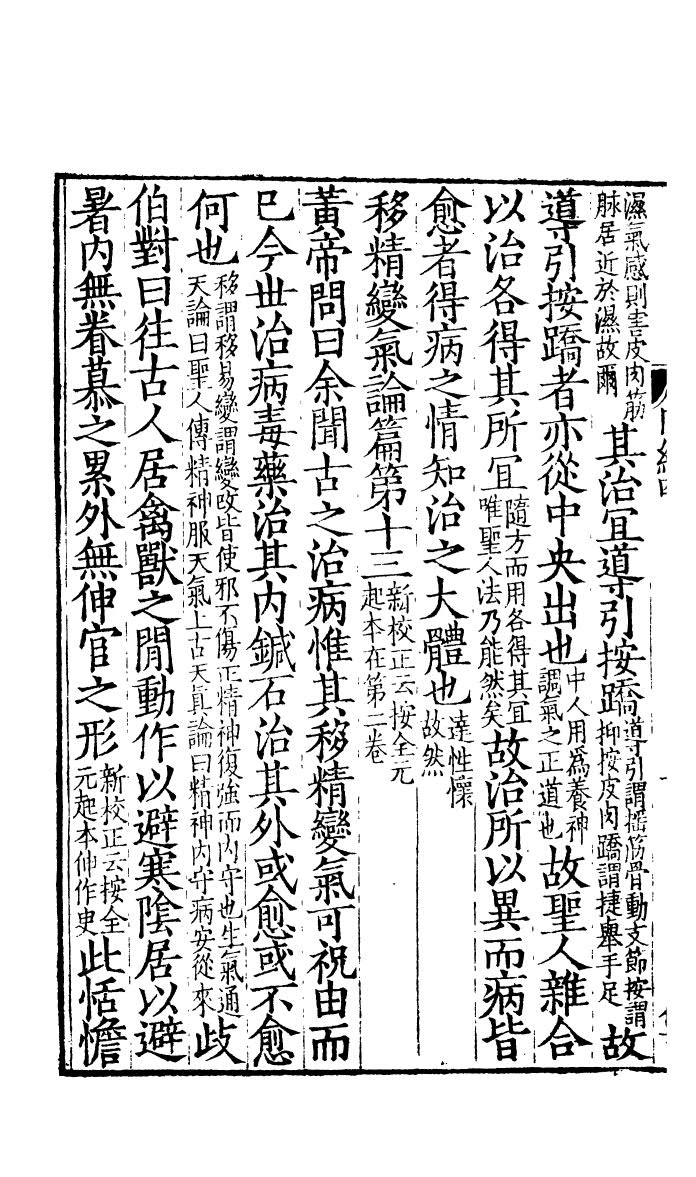 濕氣感則害皮肉筋脉居近於濕故爾其治冝導引按蹻導引謂搖筋骨動支節按謂抑按皮肉蹻謂捷舉手足故
導引按蹻者亦從中央出也中人用爲養神調氣之正道也故聖人雜合
以治各得其所冝隨方而用各得其冝唯聖人法乃能然矣故治所以異而病皆
愈者得病之情知治之大體也達性懷故然
移精變氣論篇第十三新校正云按全元起本在第二卷
黃帝問曰余聞古之治病惟其移精變氣可祝由而
已今世治病毒藥治其内鍼石治其外或愈或不愈
何也移謂移易變謂變改皆使邪不傷正精神復強而内守也生氣通天論曰聖人傳精神服天氣上古天眞論曰精神内守病安從來歧
伯對曰往古人居禽獸之閒動作以避寒陰居以避
暑内無眷慕之累外無伸官之形新校正云按全元起本伸作史此恬憺